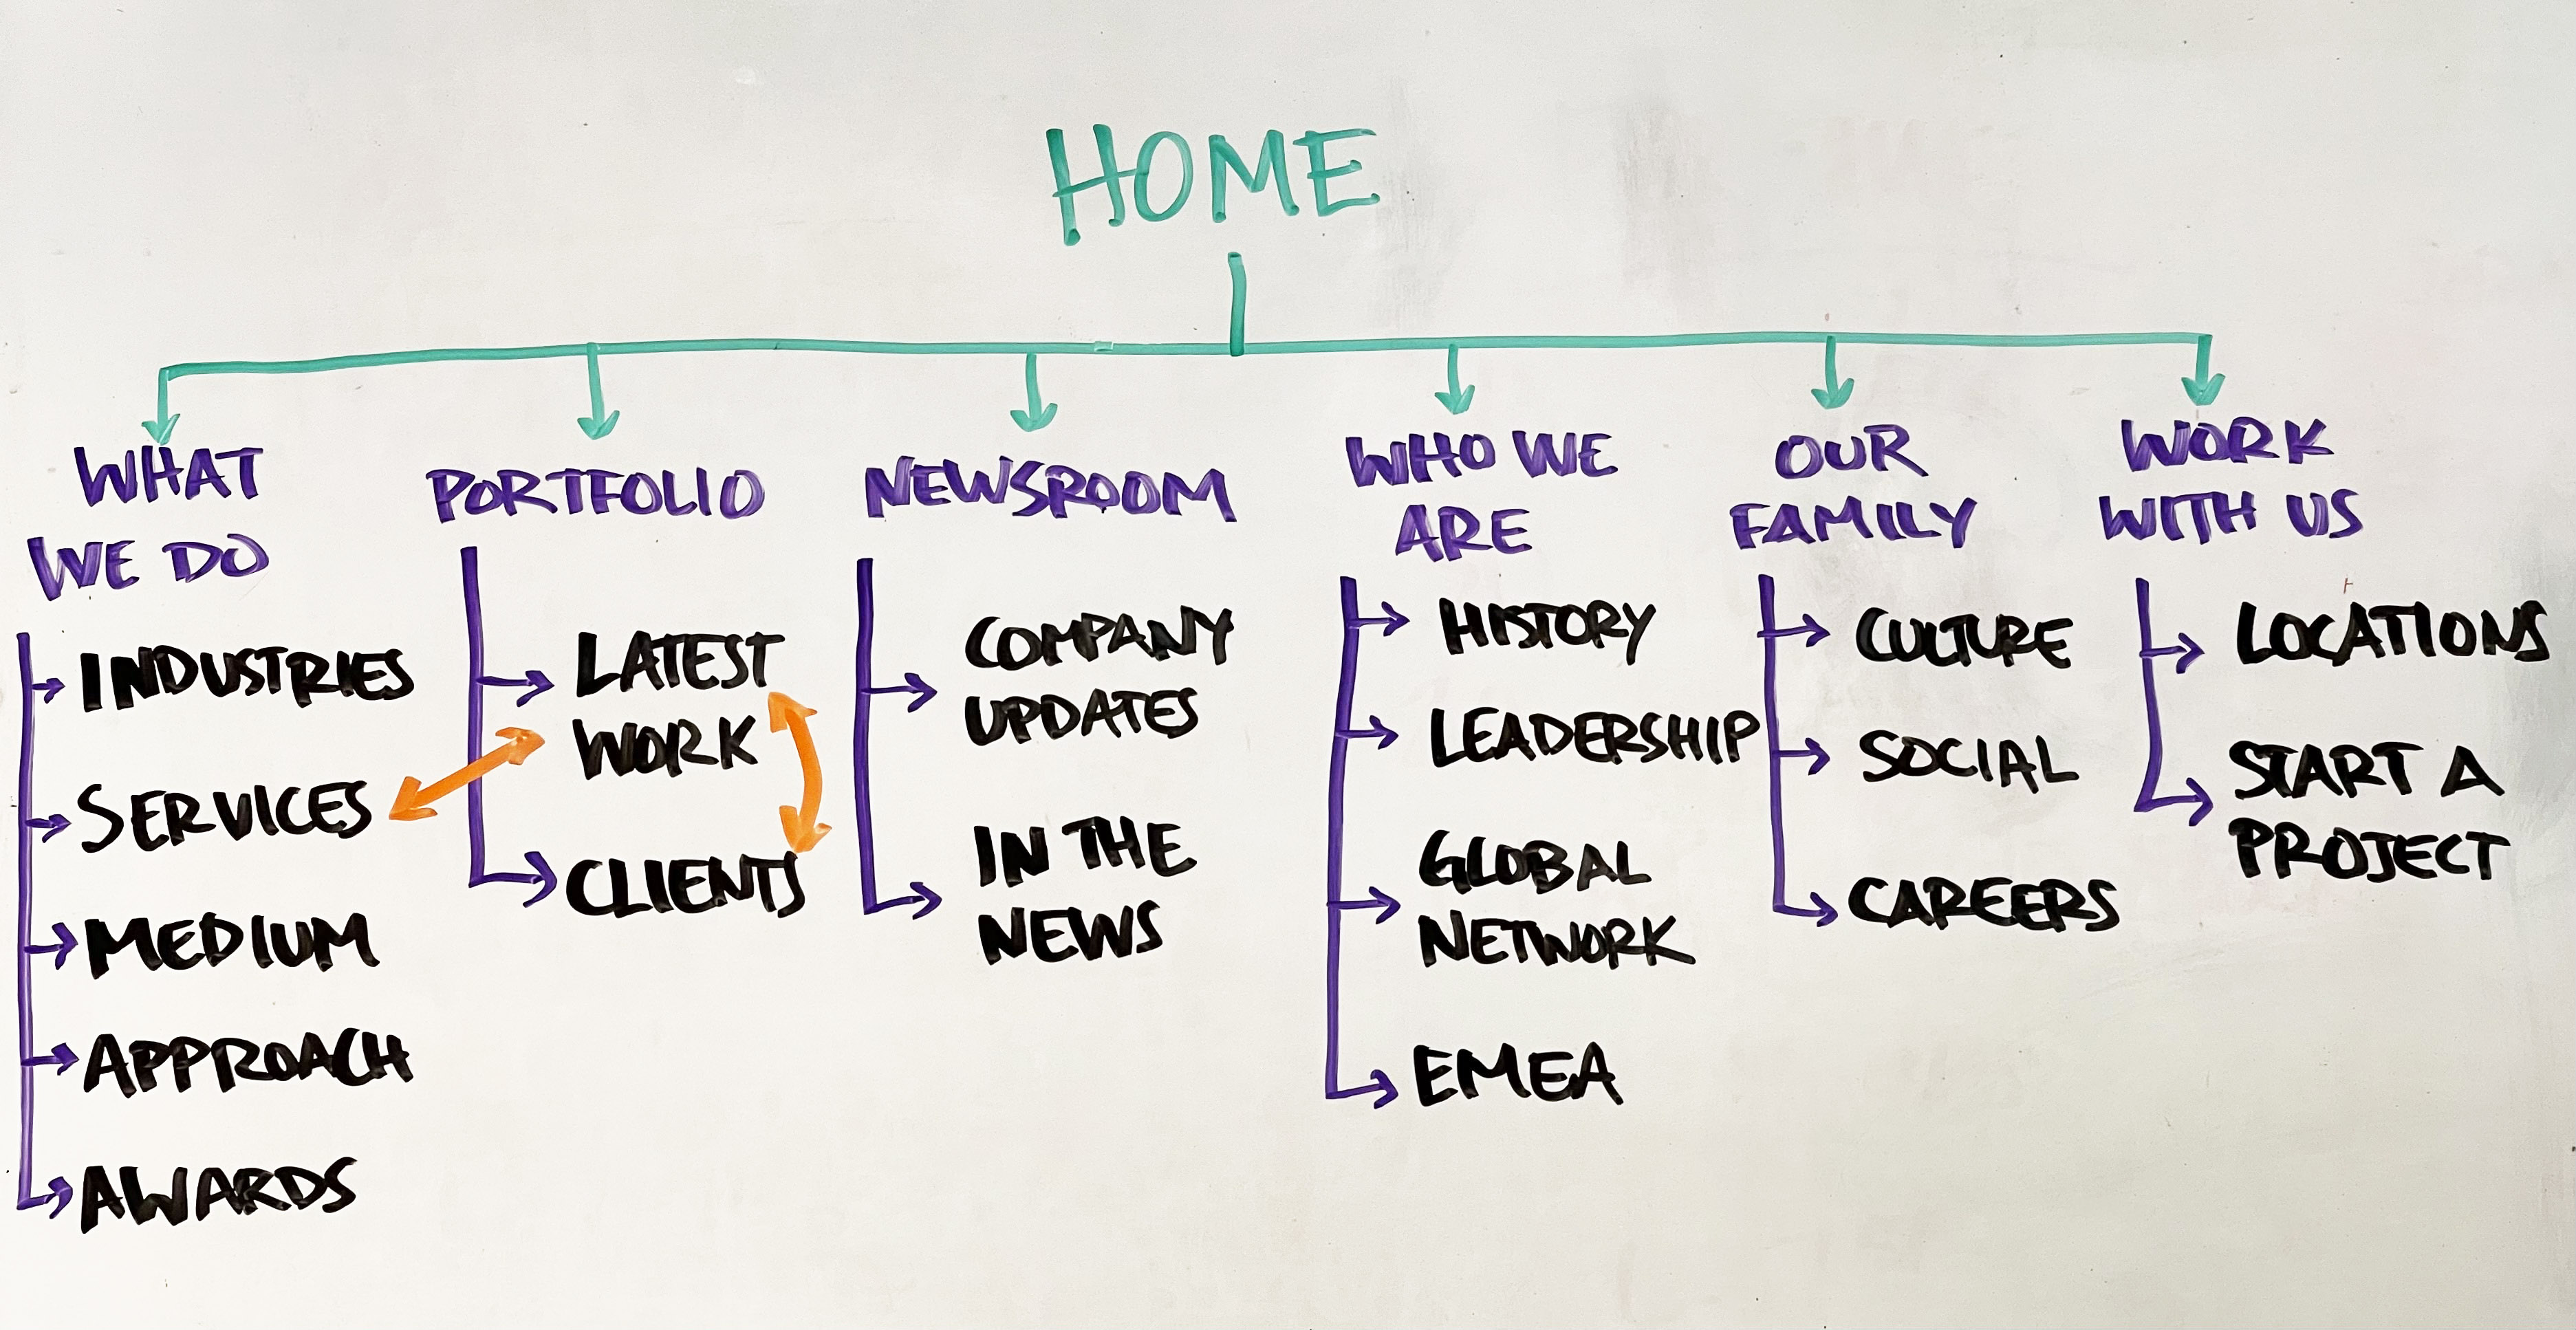 HOME
WHAT
WE DO
INDUSTRIES
SERVICES
MEDIUM
APPROACH
AWARDS
PORTFOLIO
LATEST
WORK
CLIENTS
NEWSROOM
COMPANY
UPDATES
IN THE
NEWS
WHO WE
ARE
HISTORY
LEADERSHIP
GLOBAL
NETWORK
EMEA
OUR
FAMILY
CULTURE
SOCIAL
CAREERS
WORK
WITH US
LOCATIONS
START A
PROJECT